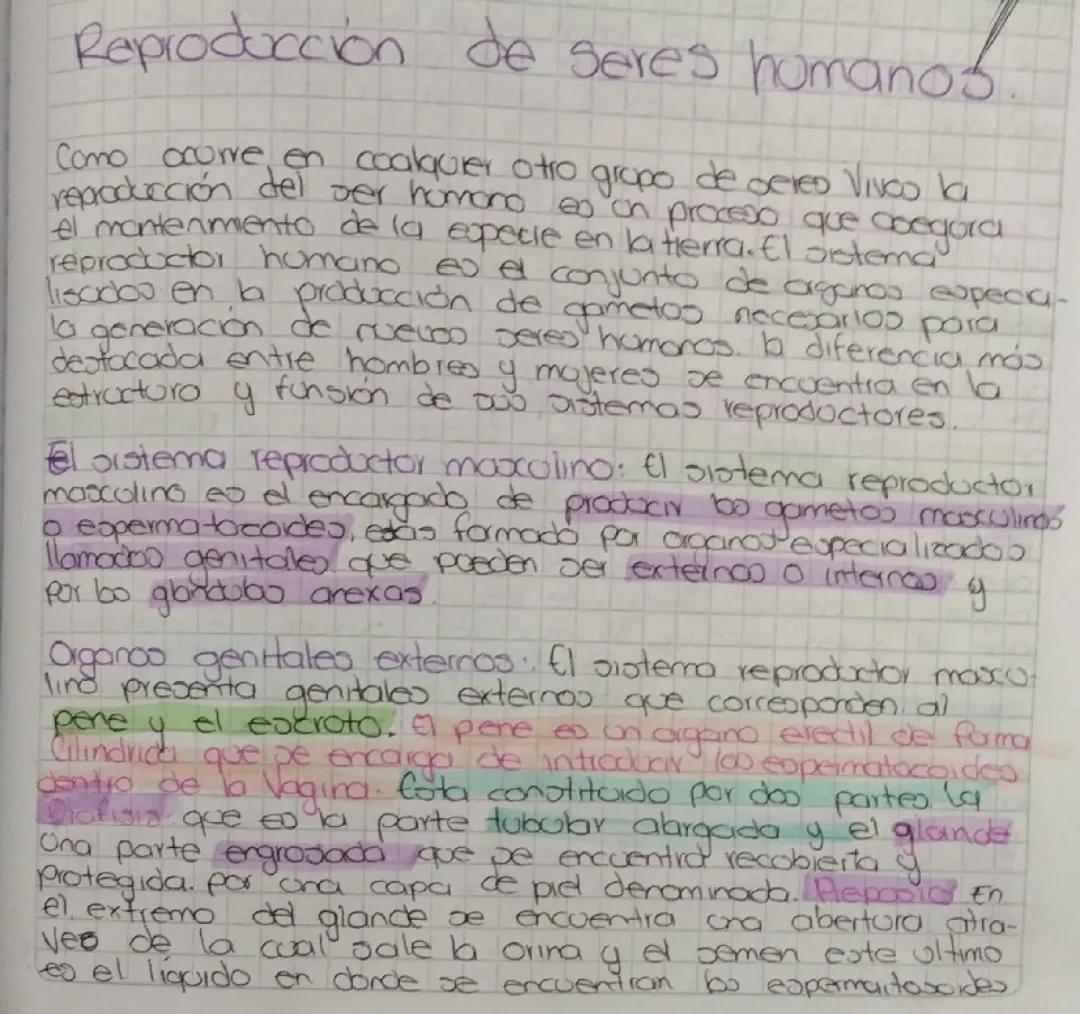 Reproducción de seres humanos.
Como ocurre, en cualquier otro grupo de seres vivos la
reproducción del ser humano es un proceso que asegura
el mantenmiento de la especie en la tierra. El sistema
reproductor humano es el conjunto de organos especia-
lisados en la producción de gametos necesarios para
la generación de nuevos seres humanos. la diferencia más
destacada entre hombres y mujeres se encuentra en la
estructura y funsión de sus sistemas reproductores.
El sistema reproductor masculino: El sistema reproductor
masculino es el encargado de producir los gametos masculinos
o espermatocoides, estás formado por organos especializados
llamados genitales que pueden ser externos o internos y
por las glándulas anexas.
Organos genitales externos: El sistema reproductor mascu-
lino presenta genitales externos que corresponden al
pene y el escroto. El pene es un organo erectil de forma
Cilindrica que se encarga de introducir los espermatocoides
dentro de la Vagina. Esta constituido por dos partes. la
que es la parte tubular alargada y el glande
Una parte engrosada que se encuentra recobierta y
Protegida. por una capa de piel denominada. Prepucio En
el extremo del glande se encuentra una abertura atra-
ves de la cual sale la orina y el semen este ultimo
es el líquido en donde se encuentran los espermatosoides